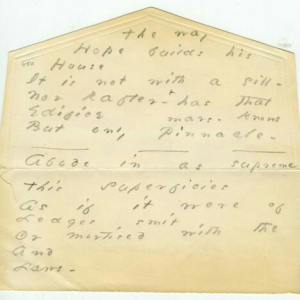 the way
Hope builds his
House
It is not with a sill -
Nor Rafter + has that
Edifice mars - knows
But only Pinnacle -
Abode in as supreme
This superficies
As if it were of
Ledges smit
Or mortised with the
And
Laws -